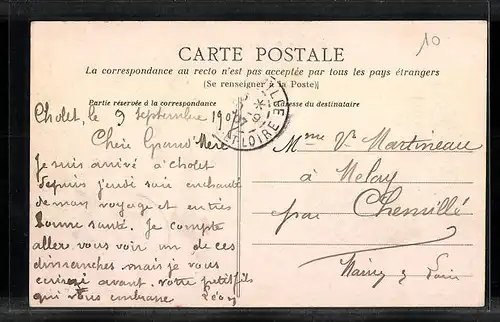 10
CARTE POSTALE
La correspondance au recto n'est pas acceptée par tous les pays étrangers
(Se renseigner à la Poste)
Partie réservée à la correspondance
Adresse du destinataire
Cholet, le 9 Septembre 190
Chère Grand'Mère
Je suis arrivé à Cholet
depuis jeudi soir enchanté
de mon voyage et en très
bonne santé. Je compte
aller vous voir un de ces
dimanches mais je vous
écrirai avant. Votre petit fils
qui vous embrasse Léon
LOIRE
Mme Ve Martineau
à Melay
par Chemillé
Maine & Loire